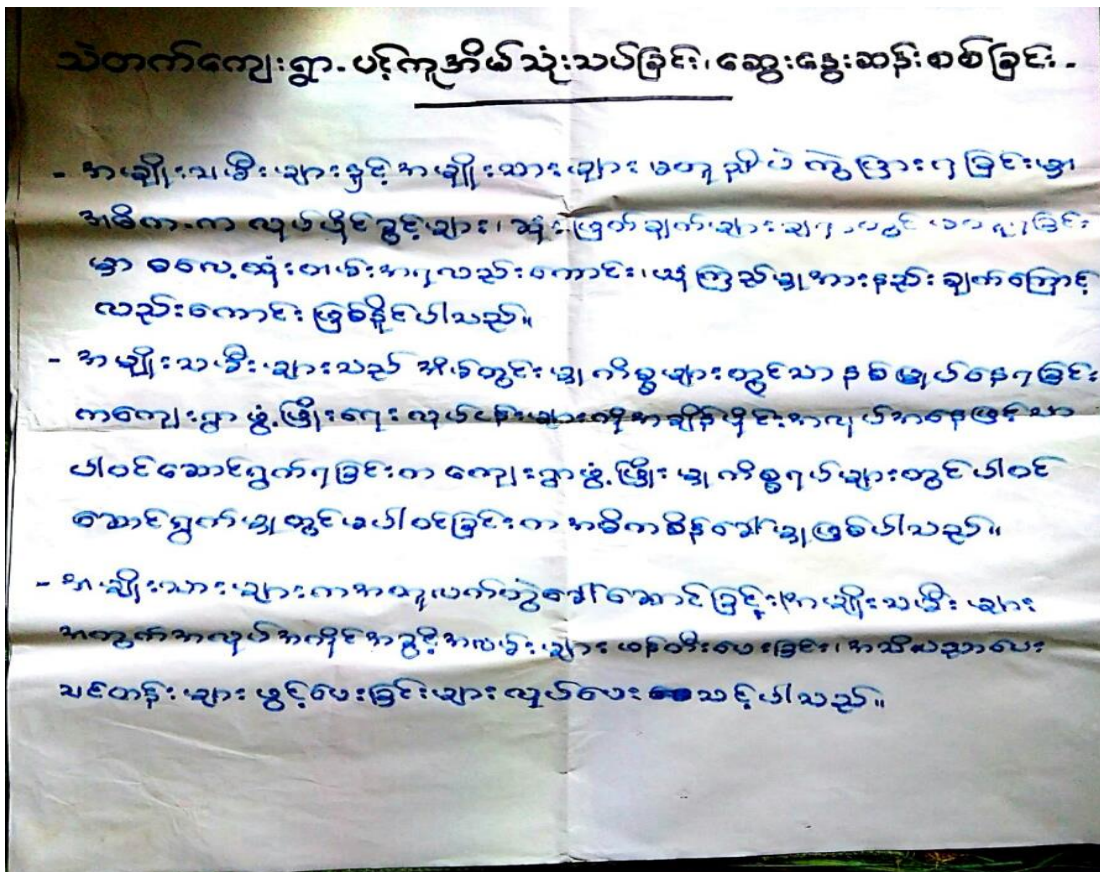 သဲတက်ကျေးရွာ-ပင့်ကူအိမ်သုံးသပ်ခြင်း၊ဆွေးနွေးဆန်းစစ်ခြင်း-
- အမျိုးသမီးများနှင့်အမျိုးသားများ မတူညီပဲ ကွဲပြားရခြင်းမှာ
အဓိက-က လုပ်ပိုင်ခွင့်များ၊ ဆုံးဖြတ်ချက်များချရာတွင် မတူခြင်း
မှာ ဓလေ့ထုံးတမ်းအရလည်းကောင်း၊ယုံကြည်မှုအားနည်းချက်ကြောင့်
လည်းကောင်း ဖြစ်နိုင်ပါသည်။
- အမျိုးသမီးများသည် အိမ်တွင်းမှုကိစ္စများတွင်သာ နစ်မြှုပ်နေရခြင်း
ကကျေးရွာဖွံ့ဖြိုးရေးလုပ်ငန်းများကိုအချိန်ပိုင်းအလုပ်အနေဖြင့်သာ
ပါဝင်ဆောင်ရွက်ရခြင်းက ကျေးရွာဖွံ့ဖြိုးမှုကိစ္စရပ်များတွင်ပါဝင်
ဆောင်ရွက်မှုတွင်မပါဝင်ခြင်းက အဓိကစိန်ခေါ်မှုဖြစ်ပါသည်။
- အမျိုးသားများကအတူလက်တွဲခေါ်ဆောင်ခြင်း၊အမျိုးသမီးများ
အတွက်အလုပ်အကိုင်အခွင့်အလမ်းများ ဖန်တီးပေးခြင်း၊အသိပညာပေး
သင်တန်းများဖွင့်ပေးခြင်းများလုပ်ပေးသင့်ပါသည်။